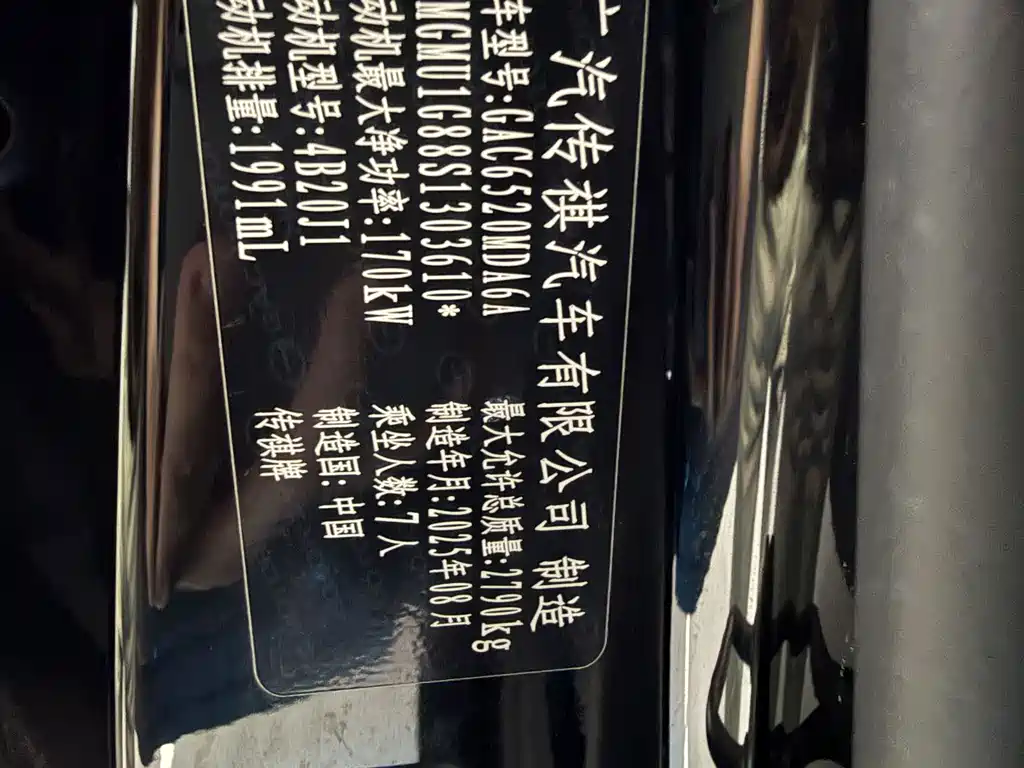 广汽传祺汽车有限公司 制造
车型号:GAC6520MDA6A 最大允许总质量:2790kg
MGMU1G88S1303610* 制造年月:2025年08月
动机最大净功率:170kW 乘坐人数:7人
动机型号:4B20J1 制造国:中国
动机排量:1991mL 传祺牌